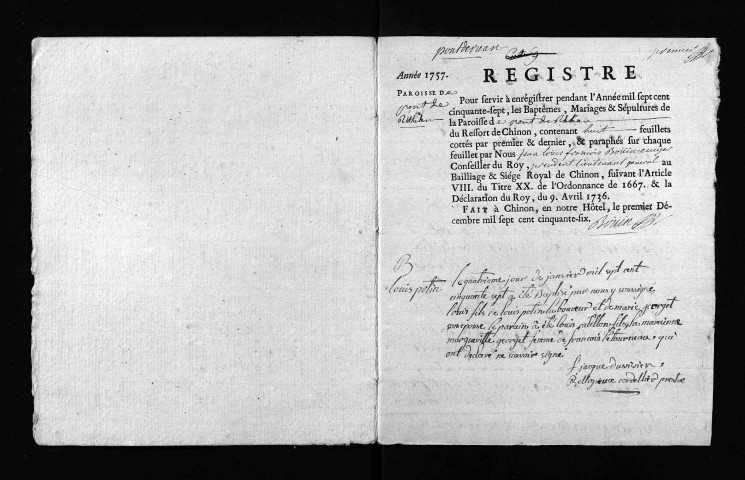 pontderuan premier
Année 1757. REGISTRE
PAROISSE De
pont de
Ruhan
Pour servir à enrégistrer pendant l'Année mil sept cent
cinquante-sept, les Baptêmes, Mariages & Sépultures de
la Paroisse de pont de Ruhan
du Ressort de Chinon, contenant huit feuillets
cottés par premier & dernier, & paraphés sur chaque
feuillet par Nous Jean Louis francois Bouin ecuyer
Conseiller du Roy, president lieutenant general au
Bailliage & Siége Royal de Chinon, suivant l'Article
VIII. du Titre XX. de l'Ordonnance de 1667. & la
Déclaration du Roy, du 9. Avril 1736.
FAIT à Chinon, en notre Hôtel, le premier Dé-
cembre mil sept cent cinquante-six. Bouin
B
Louis potin
Le quatrieme jour de janvier mil sept cent
cinquante sept a été Baptisé par nous y soussigné
louis fils de louis potin laboureur et de marie georget
son epouse le parain a été louis fils la maraine
margueritte georget femme de francois letourneau qui
ont declaré ne scavoir signé
f jacque duvivier
Religieux cordellier